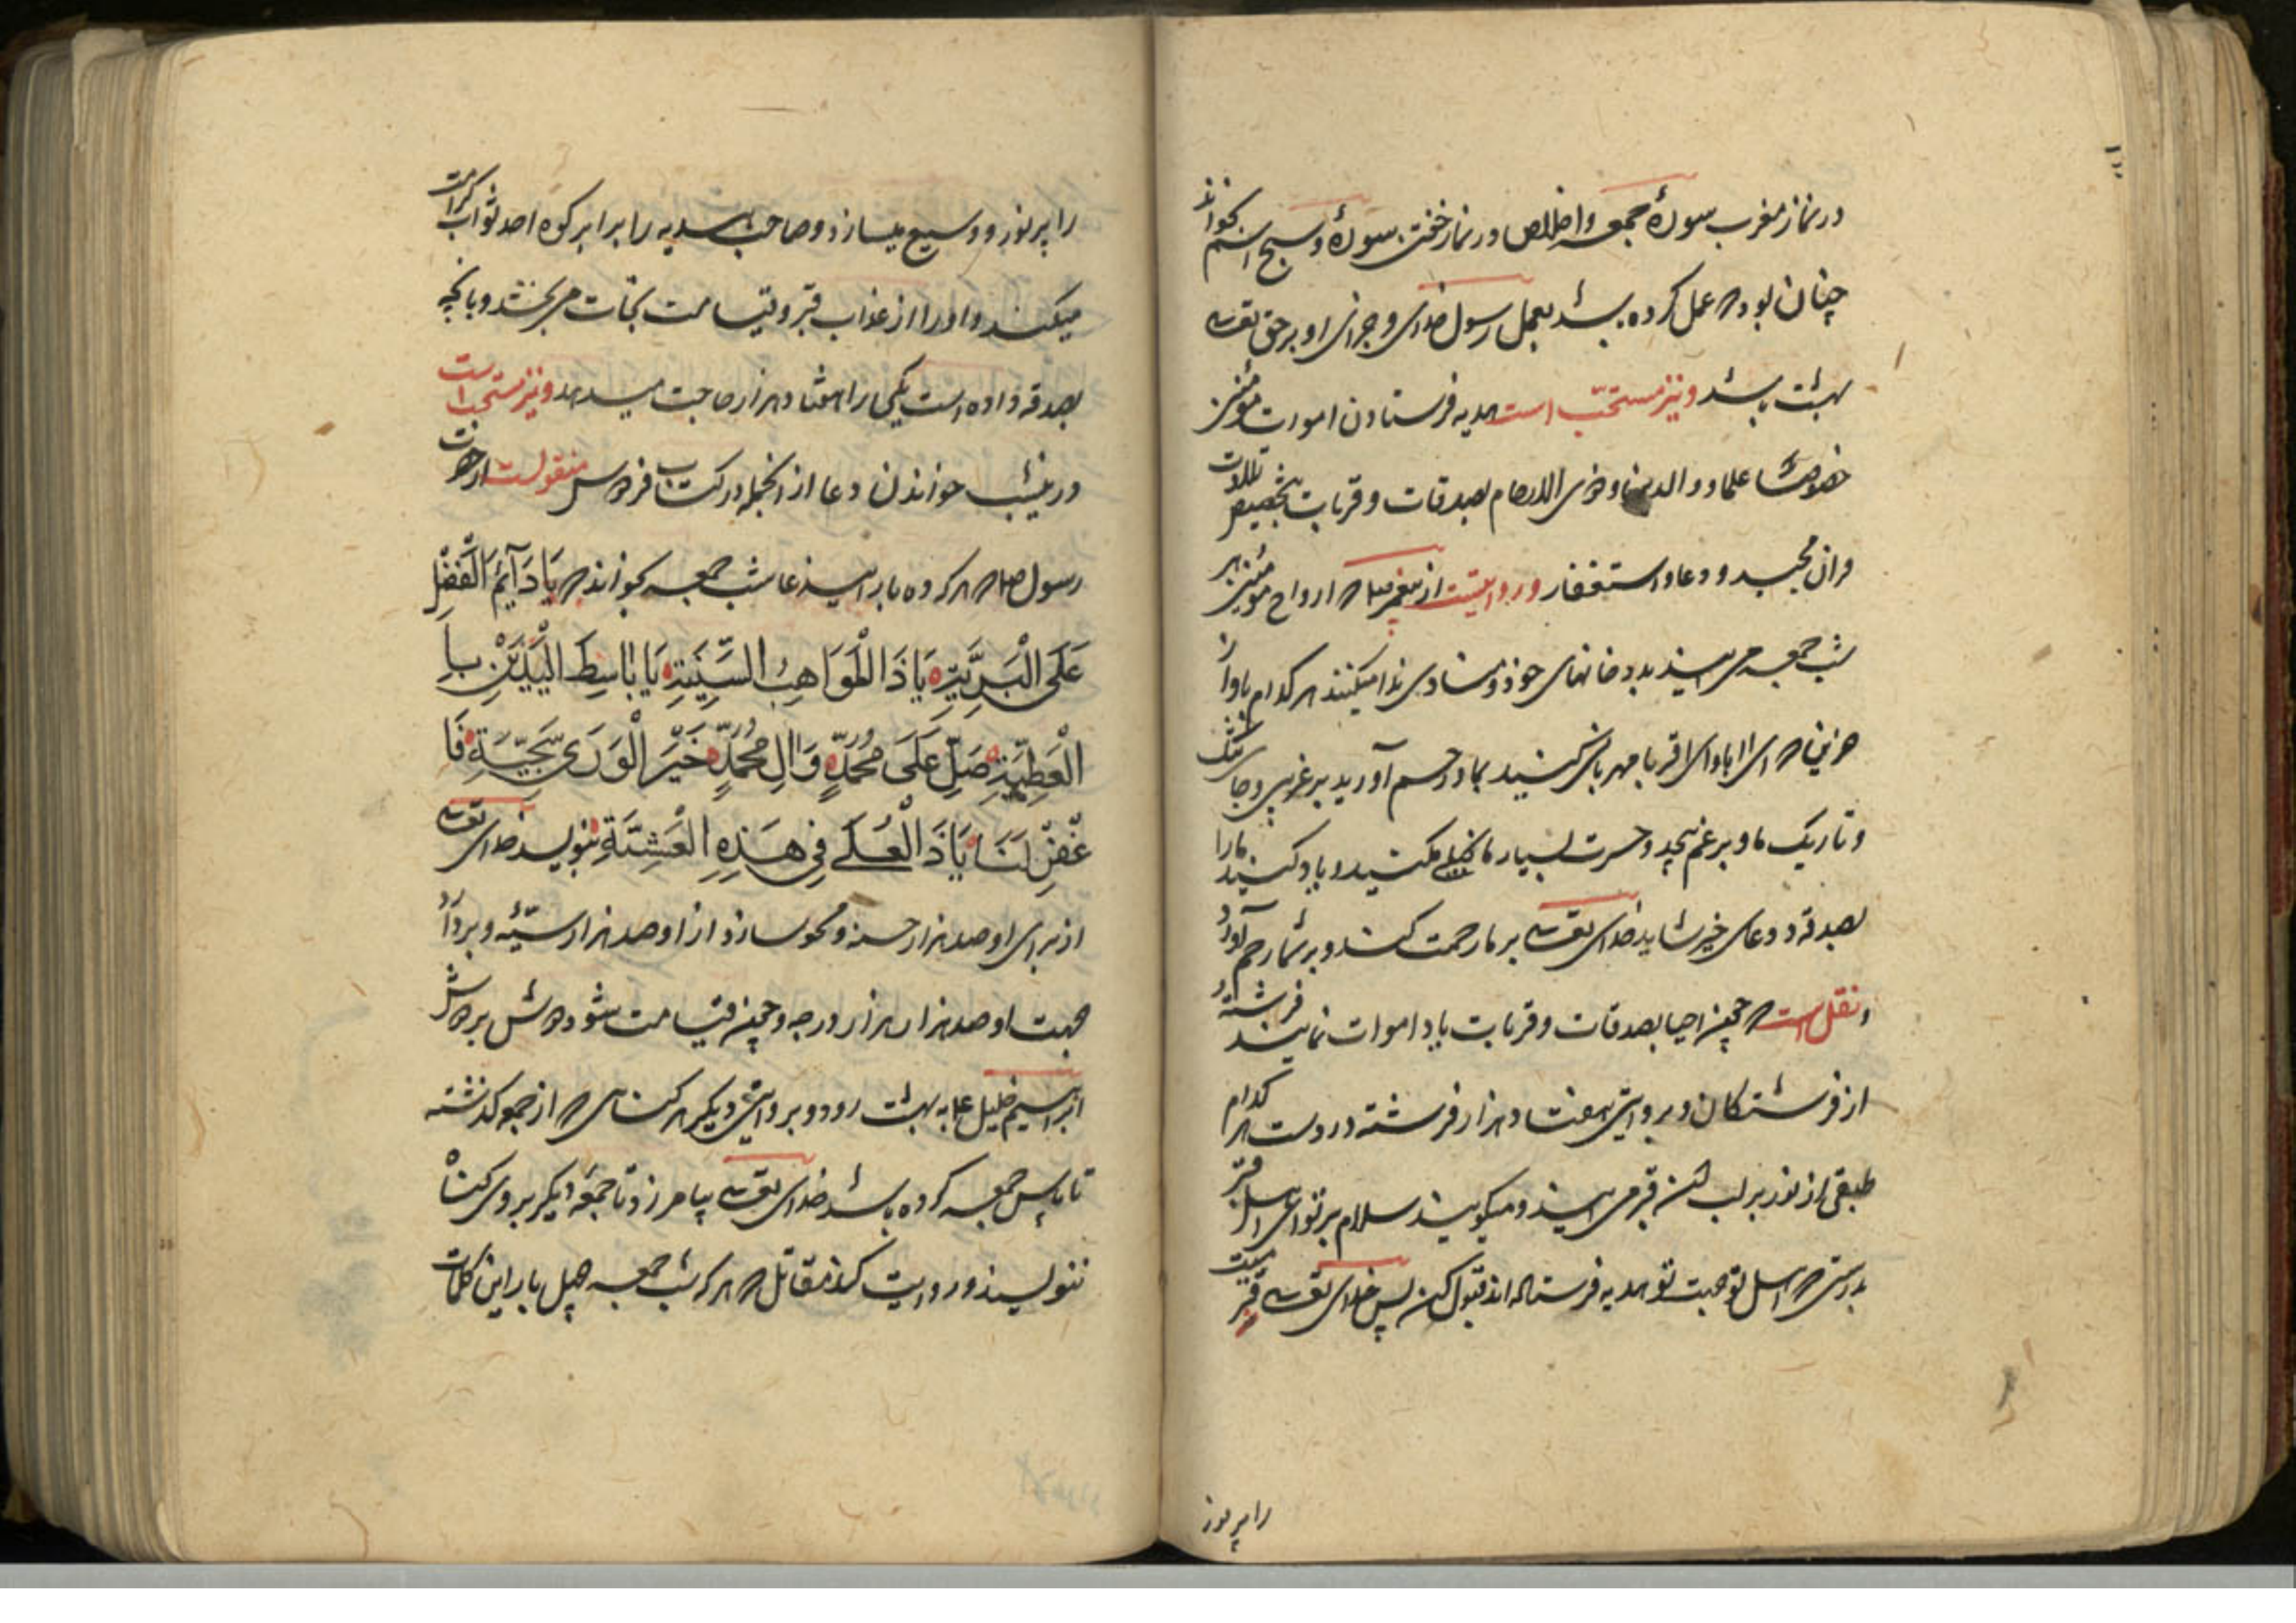 در نماز مغرب سورهٔ جمعه و اخلاص و در نماز خفتن سورهٔ و سبح اسم بخواند
چنان بود که عمل کرده باشد بعمل رسول خدای و جزای او بر حق تعالی
بهشت باشد و نیز مستحبّ است هدیه فرستادن اموات مؤمنین
خصوصًا علما و والدین و ذوی الارحام بصدقات و قربات بتخصیص تلاوت
قران مجید و دعا و استغفار و روایتست از پیغمبر صلعم که ارواح مؤمنین هر
شب جمعه می آیند بدر خانهای خود و منادی ندا میکنند هر کدام باواز
حزین که ای ابا و ای اقربا مهربانی کنید بما و رحم آورید بر غریبی و جای تنک
و تاریک ما و بر غم بیحد و حسرت بسیار ما بخیلی مکنید و یاد کنید ما را
بصدقه و دعای خیر شاید خدای تعالی بر ما رحمت کند و بر شما رحم آورد
و نقل است که چون احیا بصدقات و قربات یاد اموات نمایند فرشتهٔ
از فرشتکان و بروایتی هفتاد هزار فرشته در دست هر کدام
طبقی از نور بر لب آن قبر می آیند و میکویند سلام بر تو ای اهل قبر
بدرستی که اهل تو جهت تو هدیه فرستاده اند قبول کن پس خدای تعالی قبر میّت
را پر نور
را پر نور و وسیع میسازد و صاحب هدیه را برابر کوه احد ثواب کرامت
میکند و او را از عذاب قبر و قیامت نجات می بخشد و بانچه
بصدقه داده است یکی را هفتاد هزار حاجت میدهد و نیز مستحب است
درینشب خواندن دعا از انجمله در کتاب فردوس منقولست از حضرت
رسول صلعم که هر که ده بار این دعا شب جمعه بخواند که یَا دَآئِمَ الْفَضْلِ
عَلَی الْبَرِیَّةِ یَا ذَا الْمَوَاهِبِ السَّنِیَّةِ یَا بَاسِطَ الْیَدَیْنِ بِا
لْعَطِیَّةِ صَلِّ عَلَی مُحَمَّدٍ وَ الِ مُحَمَّدٍ خَیْرِ الْوَرَی سَجِیَّةٍ فَا
غْفِرْ لَنَا یَا ذَ الْعُلَی فِی هَذِهِ الْعَشِیَّةِ بنویسد خدای تعالی
از برای او صد هزار حسنه و محو سازد از او صد هزار سیّئه و بردارد
جهت او صد هزار هزار درجه و چون قیامت شود دوشش بر دوش
ابراهیم خلیل ع به بهشت رود و بروایتی دیکر هر کناهی که از جمعه کذشته
تا باین جمعه کرده باشد خدای تعالی بیامرزد و تا جمعهٔ دیکر بر وی کناه
ننویسد و روایت کند مقاتل که هر که شب جمعه چهل بار این کلمات